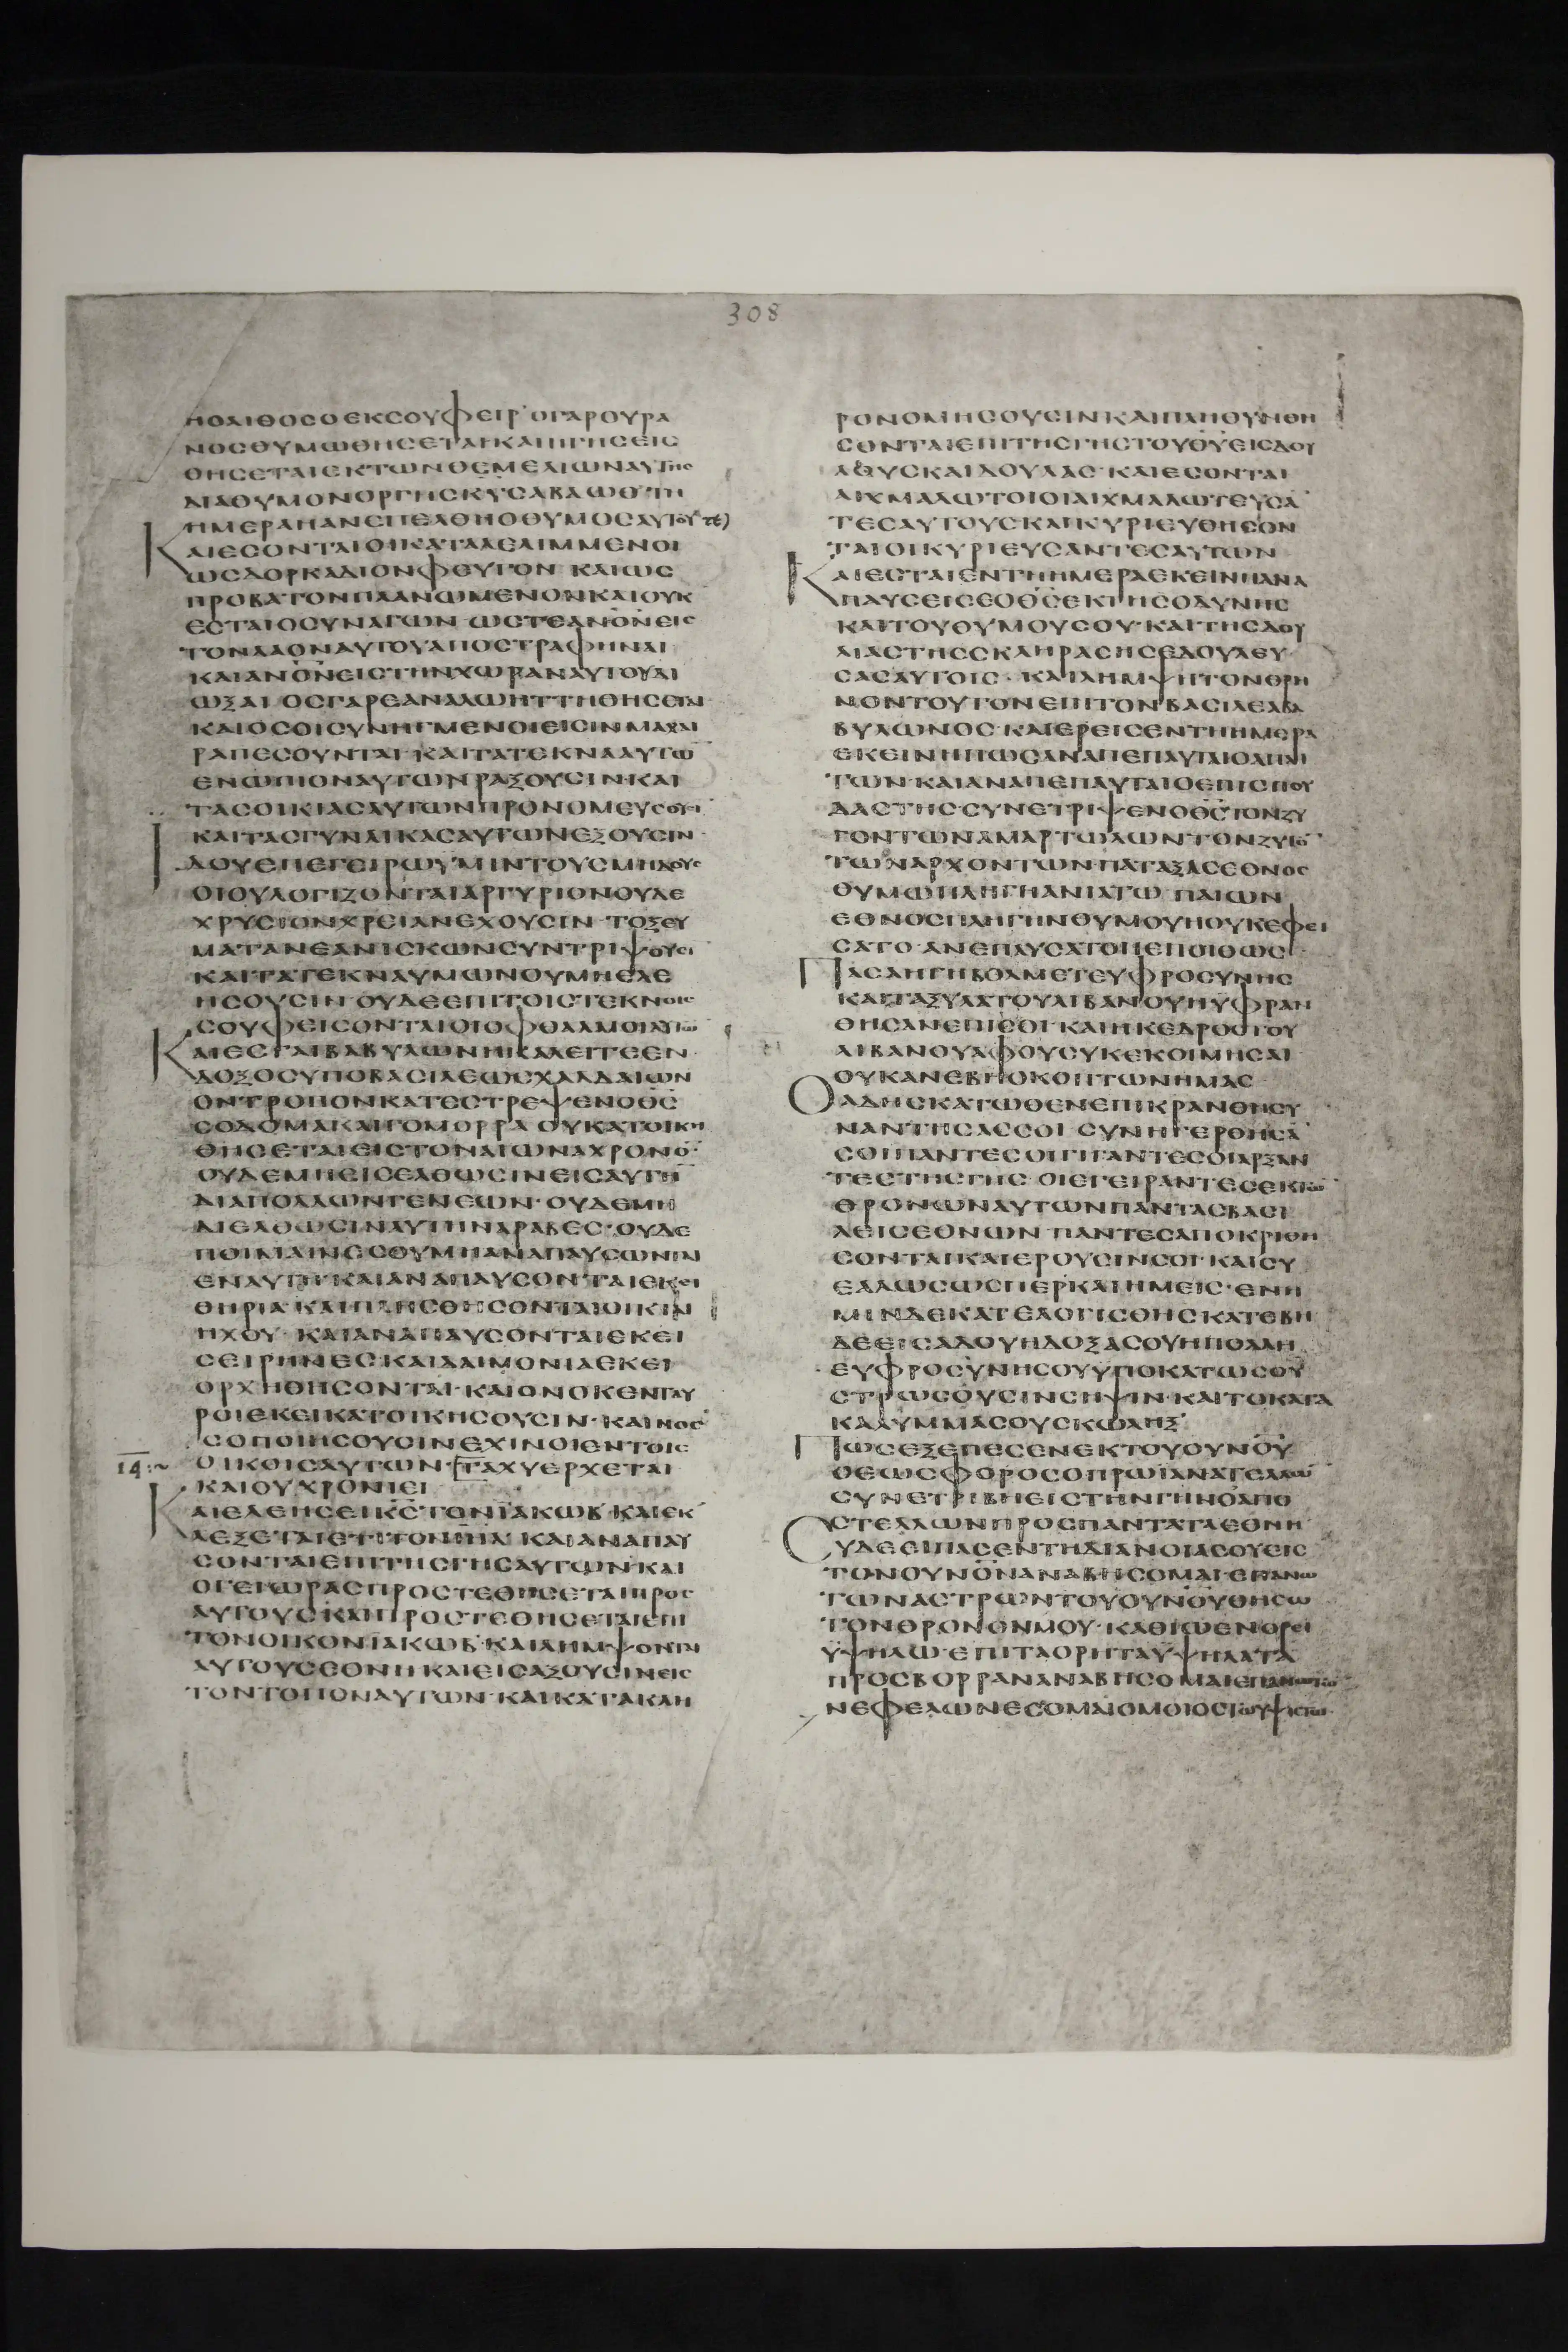 308
ΗΟΛΙΘΟΣΟΕΚΣΟΥΦΕΙΡ·ΟΓΑΡΟΥΡΑ
ΝΟΣΘΥΜΩΘΗΣΕΤΑΙ·ΚΑΙΗΓΗΣΕΙΣ
ΘΗΣΕΤΑΙΕΚΤΩΝΘΕΜΕΛΙΩΝΑΥΤΗΣ
ΔΙΑΘΥΜΟΝΟΡΓΗΣΚΥΣΑΒΑΩΘ·ΤΗ
ΗΜΕΡΑΗΑΝΕΠΕΛΘΗΟΘΥΜΟΣΑΥΤΟΥ
ΚΑΙΕΣΟΝΤΑΙΟΙΚΑΤΑΛΕΛΙΜΜΕΝΟΙ
ΩΣΔΟΡΚΑΔΙΟΝΦΕΥΓΟΝ·ΚΑΙΩΣ
ΠΡΟΒΑΤΟΝΠΛΑΝΩΜΕΝΟΝΚΑΙΟΥΚ
ΕΣΤΑΙΟΣΥΝΑΓΩΝ·ΩΣΤΕΑΝΟΝΕΙΣ
ΤΟΝΛΑΟΝΑΥΤΟΥΑΠΟΣΤΡΑΦΗΝΑΙ
ΚΑΙΑΝΟΝΕΙΣΤΗΝΧΩΡΑΝΑΥΤΟΥΔΙ
ΩΞΑΙ·ΟΣΓΑΡΕΑΝΑΛΩΗΤΤΗΘΗΣΕΤΑΙ
ΚΑΙΟΣΟΙΣΥΝΗΓΜΕΝΟΙΕΙΣΙΝΜΑΧΑΙ
ΡΑΠΕΣΟΥΝΤΑΙ·ΚΑΙΤΑΤΕΚΝΑΑΥΤΩ
ΕΝΩΠΙΟΝΑΥΤΩΝΡΑΞΟΥΣΙΝ·ΚΑΙ
ΤΑΣΟΙΚΙΑΣΑΥΤΩΝΠΡΟΝΟΜΕΥΣΟΥΣΙ
ΚΑΙΤΑΣΓΥΝΑΙΚΑΣΑΥΤΩΝΕΞΟΥΣΙΝ·
ΙΔΟΥΕΠΕΓΕΙΡΩΥΜΙΝΤΟΥΣΜΗΔΟΥΣ
ΟΙΟΥΛΟΓΙΖΟΝΤΑΙΑΡΓΥΡΙΟΝΟΥΔΕ
ΧΡΥΣΙΟΝΧΡΕΙΑΝΕΧΟΥΣΙΝ·ΤΟΞΕΥ
ΜΑΤΑΝΕΑΝΙΣΚΩΝΣΥΝΤΡΙΨΟΥΣΙ
ΚΑΙΤΑΤΕΚΝΑΥΜΩΝΟΥΜΗΕΛΕ
ΗΣΟΥΣΙΝ·ΟΥΔΕΕΠΙΤΟΙΣΤΕΚΝΟΙΣ
ΣΟΥΦΕΙΣΟΝΤΑΙΟΙΟΦΘΑΛΜΟΙΑΥΤΩ
ΚΑΙΕΣΤΑΙΒΑΒΥΛΩΝΗΚΑΛΕΙΤΕΕΝ
ΔΟΞΟΣΥΠΟΒΑΣΙΛΕΩΣΧΑΛΔΑΙΩΝ
ΟΝΤΡΟΠΟΝΚΑΤΕΣΤΡΕΨΕΝΟΘΣ
ΣΟΔΟΜΑΚΑΙΓΟΜΟΡΡΑ·ΟΥΚΑΤΟΙΚΗ
ΘΗΣΕΤΑΙΕΙΣΤΟΝΑΙΩΝΑΧΡΟΝΟ·
ΟΥΔΕΜΗΕΙΣΕΛΘΩΣΙΝΕΙΣΑΥΤΗ
ΔΙΑΠΟΛΛΩΝΓΕΝΕΩΝ·ΟΥΔΕΜΗ
ΔΙΕΛΘΩΣΙΝΑΥΤΗΝΑΡΑΒΕΣ·ΟΥΔΕ
ΠΟΙΜΑΙΝΕΣΟΥΜΗΑΝΑΠΑΥΣΩΝΤΑΙ
ΕΝΑΥΤΗ·ΚΑΙΑΝΑΠΑΥΣΟΝΤΑΙΕΚΕΙ
ΘΗΡΙΑ·ΚΑΙΠΛΗΣΘΗΣΟΝΤΑΙΟΙΚΙΑΙ
ΗΧΟΥ·ΚΑΙΑΝΑΠΑΥΣΟΝΤΑΙΕΚΕΙ
ΣΕΙΡΗΝΕΣ·ΚΑΙΔΑΙΜΟΝΙΑΕΚΕΙ
ΟΡΧΗΘΗΣΟΝΤΑΙ·ΚΑΙΟΝΟΚΕΝΤΑΥ
ΡΟΙΕΚΕΙΚΑΤΟΙΚΗΣΟΥΣΙΝ·ΚΑΙΝΟΣ
ΣΟΠΟΙΗΣΟΥΣΙΝΕΧΙΝΟΙΕΝΤΟΙΣ
14 ΟΙΚΟΙΣΑΥΤΩΝ·ΤΑΧΥΕΡΧΕΤΑΙ
ΚΑΙΟΥΧΡΟΝΙΕΙ
ΚΑΙΕΛΕΗΣΕΙΚΣΤΟΝΪΑΚΩΒ·ΚΑΙΕΚ
ΛΕΞΕΤΑΙΕΤΙΤΟΝΙΗΛ·ΚΑΙΑΝΑΠΑΥ
ΣΟΝΤΑΙΕΠΙΤΗΣΓΗΣΑΥΤΩΝ·ΚΑΙ
ΟΓΕΙΩΡΑΣΠΡΟΣΤΕΘΗΣΕΤΑΙΠΡΟΣ
ΑΥΤΟΥΣΚΑΙΠΡΟΣΤΕΘΗΣΕΤΑΙΕΠΙ
ΤΟΝΟΙΚΟΝΪΑΚΩΒ·ΚΑΙΛΗΜΨΟΝΤΑΙ
ΑΥΤΟΥΣΕΘΝΗΚΑΙΕΙΣΑΞΟΥΣΙΝΕΙΣ
ΤΟΝΤΟΠΟΝΑΥΤΩΝ·ΚΑΙΚΑΤΑΚΛΗ
ΡΟΝΟΜΗΣΟΥΣΙΝΚΑΙΠΛΗΘΥΝΘΗ
ΣΟΝΤΑΙΕΠΙΤΗΣΓΗΣΤΟΥΘΥΕΙΣΔΟΥ
ΛΟΥΣΚΑΙΔΟΥΛΑΣ·ΚΑΙΕΣΟΝΤΑΙ
ΑΙΧΜΑΛΩΤΟΙΟΙΑΙΧΜΑΛΩΤΕΥΣΑ
ΤΕΣΑΥΤΟΥΣΚΑΙΚΥΡΙΕΥΘΗΣΟΝ
ΤΑΙΟΙΚΥΡΙΕΥΣΑΝΤΕΣΑΥΤΩΝ
ΚΑΙΕΣΤΑΙΕΝΤΗΗΜΕΡΑΕΚΕΙΝΗΑΝΑ
ΠΑΥΣΕΙΣΕΟΘΣΕΚΤΗΣΟΔΥΝΗΣ
ΚΑΙΤΟΥΘΥΜΟΥΣΟΥ·ΚΑΙΤΗΣΔΟΥ
ΛΙΑΣΤΗΣΣΚΛΗΡΑΣΗΣΕΔΟΥΛΕΥ
ΣΑΣΑΥΤΟΙΣ·ΚΑΙΛΗΜΨΗΤΟΝΘΡΗ
ΝΟΝΤΟΥΤΟΝΕΠΙΤΟΝΒΑΣΙΛΕΑΒΑ
ΒΥΛΩΝΟΣ·ΚΑΙΕΡΕΙΣΕΝΤΗΗΜΕΡΑ
ΕΚΕΙΝΗΠΩΣΑΝΑΠΕΠΑΥΤΑΙΟΑΠΑΙ
ΤΩΝ·ΚΑΙΑΝΑΠΕΠΑΥΤΑΙΟΕΠΙΣΠΟΥ
ΔΑΣΤΗΣ·ΣΥΝΕΤΡΙΨΕΝΟΘΣΤΟΝΖΥ
ΓΟΝΤΩΝΑΜΑΡΤΩΛΩΝ·ΤΟΝΖΥΓΟ
ΤΩΝΑΡΧΟΝΤΩΝ·ΠΑΤΑΞΑΣΕΘΝΟΣ
ΘΥΜΩΠΛΗΓΗΑΝΙΑΤΩ·ΠΑΙΩΝ
ΕΘΝΟΣΠΛΗΓΗΝΘΥΜΟΥΗΟΥΚΕΦΕΙ
ΣΑΤΟ·ΑΝΕΠΑΥΣΑΤΟΠΕΠΟΙΘΩΣ
ΠΑΣΑΗΓΗΒΟΑΜΕΤΕΥΦΡΟΣΥΝΗΣ
ΚΑΙΤΑΞΥΛΑΤΟΥΛΙΒΑΝΟΥΗΥΦΡΑΝ
ΘΗΣΑΝΕΠΙΣΟΙ·ΚΑΙΗΚΕΔΡΟΣΤΟΥ
ΛΙΒΑΝΟΥΑΦΟΥΣΥΚΕΚΟΙΜΗΣΑΙ
ΟΥΚΑΝΕΒΗΟΚΟΠΤΩΝΗΜΑΣ
ΟΑΔΗΣΚΑΤΩΘΕΝΕΠΙΚΡΑΝΘΗΣΥ
ΝΑΝΤΗΣΑΣΣΟΙ·ΣΥΝΗΓΕΡΘΗΣΑ
ΣΟΙΠΑΝΤΕΣΟΙΓΙΓΑΝΤΕΣΟΙΑΡΞΑΝ
ΤΕΣΤΗΣΓΗΣ·ΟΙΕΓΕΙΡΑΝΤΕΣΕΚΤΩ
ΘΡΟΝΩΝΑΥΤΩΝΠΑΝΤΑΣΒΑΣΙ
ΛΕΙΣΕΘΝΩΝ·ΠΑΝΤΕΣΑΠΟΚΡΙΘΗ
ΣΟΝΤΑΙΚΑΙΕΡΟΥΣΙΝΣΟΙ·ΚΑΙΣΥ
ΕΑΛΩΣΩΣΠΕΡΚΑΙΗΜΕΙΣ·ΕΝΗ
ΜΙΝΔΕΚΑΤΕΛΟΓΙΣΘΗΣ·ΚΑΤΕΒΗ
ΔΕΕΙΣΑΔΟΥΗΔΟΞΑΣΟΥΗΠΟΛΛΗ
ΕΥΦΡΟΣΥΝΗΣΟΥΫΠΟΚΑΤΩΣΟΥ
ΣΤΡΩΣΟΥΣΙΝΣΗΨΙΝ·ΚΑΙΤΟΚΑΤΑ
ΚΑΛΥΜΜΑΣΟΥΣΚΩΛΗΞ
ΠΩΣΕΞΕΠΕΣΕΝΕΚΤΟΥΟΥΝΟΥ
ΟΕΩΣΦΟΡΟΣΟΠΡΩΪΑΝΑΤΕΛΛΩ
ΣΥΝΕΤΡΙΒΗΕΙΣΤΗΝΓΗΝΟΑΠΟ
ΣΤΕΛΛΩΝΠΡΟΣΠΑΝΤΑΤΑΕΘΝΗ
ΣΥΔΕΕΙΠΑΣΕΝΤΗΔΙΑΝΟΙΑΣΟΥΕΙΣ
ΤΟΝΟΥΝΟΝΑΝΑΒΗΣΟΜΑΙ·ΕΠΑΝΩ
ΤΩΝΑΣΤΡΩΝΤΟΥΟΥΝΟΥΘΗΣΩ
ΤΟΝΘΡΟΝΟΝΜΟΥ·ΚΑΘΙΩΕΝΟΡΕΙ
ΫΨΗΛΩ·ΕΠΙΤΑΟΡΗΤΑΫΨΗΛΑΤΑ
ΠΡΟΣΒΟΡΡΑΝΑΝΑΒΗΣΟΜΑΙΕΠΑΝΩΤΩ
ΝΕΦΕΛΩΝΕΣΟΜΑΙΟΜΟΙΟΣΤΩΥΨΙΣΤΩ